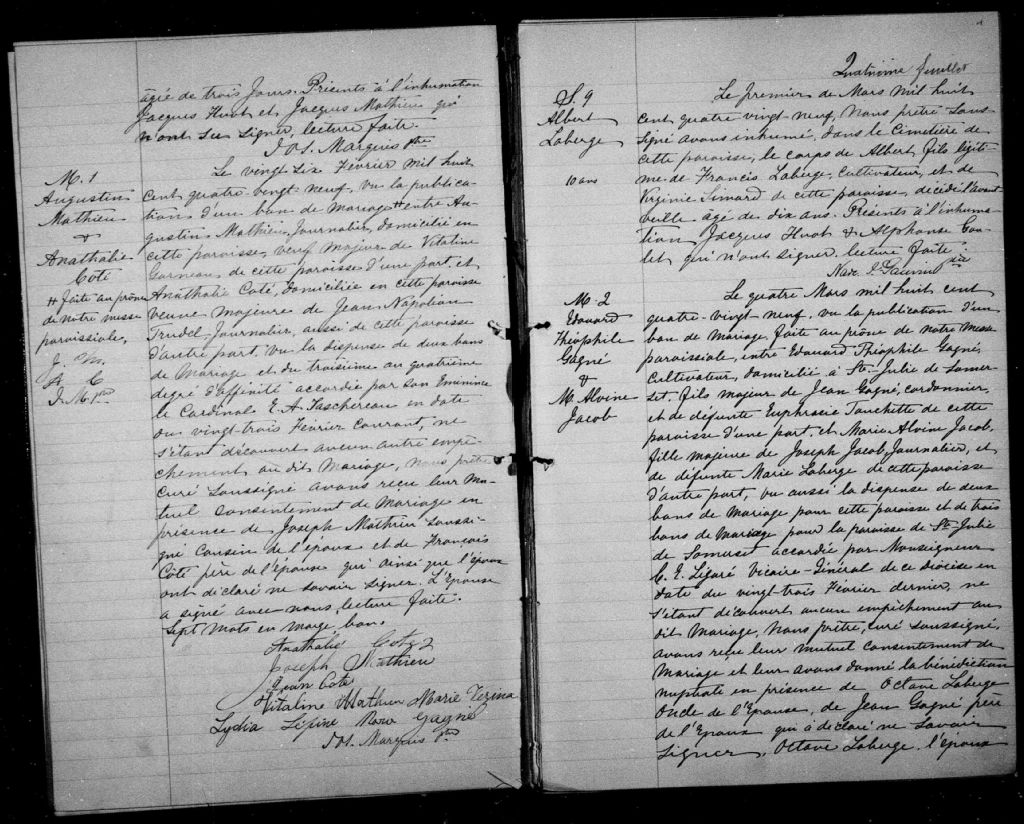 agée de trois Jours. Présents à l'inhumation
Jacques Huot et Jacques Mathieu qui
n'ont su signer, lecture faite.
Jos. Marquis ptre
M. 1
Augustin
Mathieu
&
Anathalie
Coté
# faite au prône
de notre messe
paroissiale.
J. M.
F. C.
J. M. ptre
Le vingt six Février mil huit
cent quatre-vingt-neuf, vu la publica-
tion d'un ban de Mariage # entre Au-
gustin Mathieu, Journalier, domicilié en
cette paroisse, veuf majeur de Vitaline
Garneau de cette paroisse d'une part, et
Anathalie Coté, domiciliée en cette paroisse
veuve majeure de Jean Napoléon
Trudel, Journalier, aussi de cette paroisse
d'autre part, vu la dispense de deux bans
de Mariage et du troisième au quatrième
degré d'affinité accordée par son Eminence
le Cardinal E. A. Taschereau en date
du vingt-trois Février courant, ne
s'étant découvert aucun autre empê-
chement au dit Mariage, nous prêtre
curé soussigné avons reçu leur mu-
tuel consentement de Mariage en
présence de Joseph Mathieu soussi-
gné cousin de l'époux et de François
Côté père de l'épouse qui ainsi que l'époux
ont déclaré ne savoir signer. L'Epouse
a signé avec nous, lecture faite.
Sept mots en marge bon.
Anathalie Cote
Joseph Mathieu
Jean Cote
Vitaline Mathieu Marie
Lydia Lépine Rose Gagné
Jos. Marquis ptre
Quatrième feuillet
S. 9
Albert
Laberge
10 ans
Le premier de Mars mil huit
cent quatre vingt-neuf, Nous prêtre sous-
signé avons inhumé, dans le Cimetière de
cette paroisse, le corps de Albert, fils légiti-
me de Francis Laberge, cultivateur, et de
Virginie Simard de cette paroisse, décédé l'avant
veille agé de dix ans. Présents à l'inhuma-
tion Jacques Huot & Alphonse Cou-
let qui n'ont signer. lecture faite.
Narc. ptre
M. 2
Edouard
Théophile
Gagné
&
M. Alvine
Jacob
Le quatre Mars mil huit cent
quatre-vingt neuf, vu la publication d'un
ban de Mariage, faite au prône de notre Messe
paroissiale, entre Edouard Théophile Gagné,
Cultivateur, domicilié à Ste Julie de Somer-
set, fils majeur de Jean Gagné, cordonnier,
et de défunte Euphrosie Touchette de cette
paroisse d'une part, et Marie Alvine Jacob,
fille majeure de Joseph Jacob, Journalier, et
de défunte Marie Laberge de cette paroisse
d'autre part, vu aussi la dispense de deux
bans de Mariage pour cette paroisse et de trois
bans de Mariage pour la paroisse de Ste Julie
de Somerset accordée par Monseigneur
C. E. Légaré Vicaire-Général de ce diocèse en
date du vingt-trois Février dernier, ne
s'étant découvert aucun empêchement au
dit Mariage, Nous prêtre, curé soussigné,
avons reçu leur mutuel consentement de
Mariage et leur avons donné la bénédiction
nuptiale en présence de Octave Laberge
Oncle de l'Epouse, de Jean Gagné père
de l'Epoux qui a déclaré ne savoir
signer, Octave Laberge, l'époux